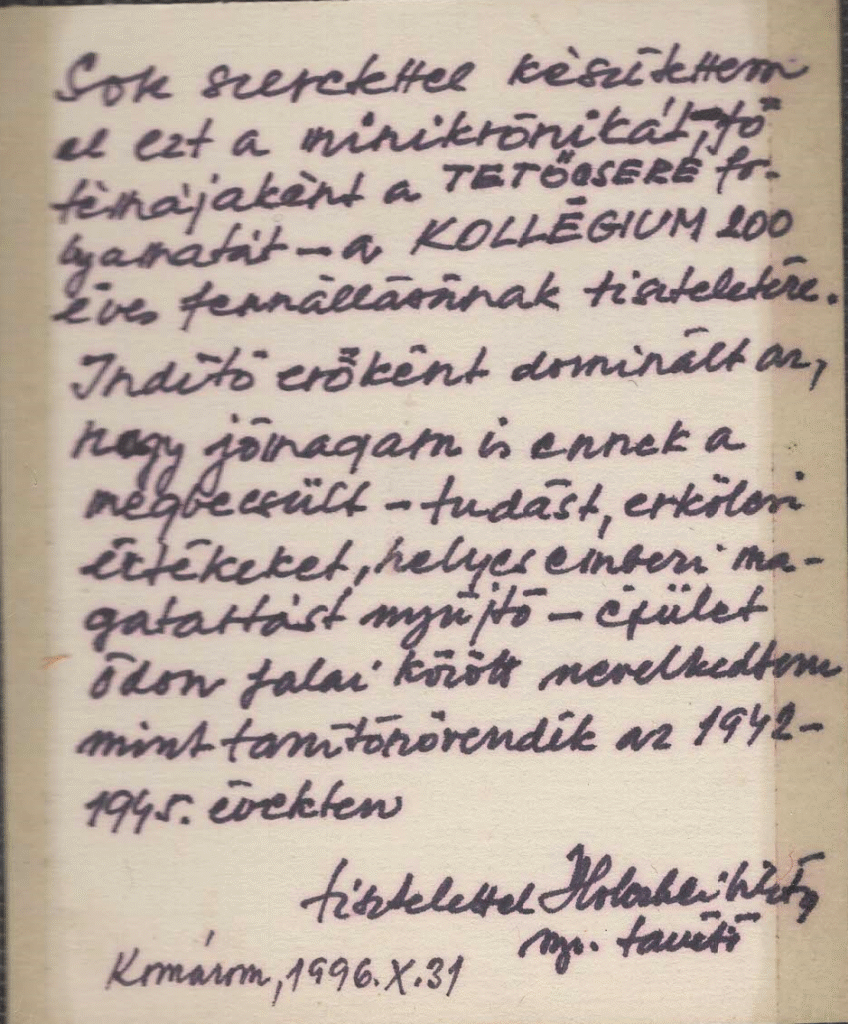 Sok szeretettel készítettem
el ezt a minikrónikát, fő
témájaként a TETŐCSERE fo-
lyamatát – a KOLLÉGIUM 200
éves fennállásának tiszteletére.
Indító erőként dominált az,
hogy jómagam is ennek a
megbecsült – tudást, erkölcsi
értékeket, helyes emberi ma-
gatartást nyújtó – épület
ódon falai között nevelkedtem
mint tanítónövendék az 1942-
1945. években
tisztelettel
ny. tanító
Komárom, 1996.X.31